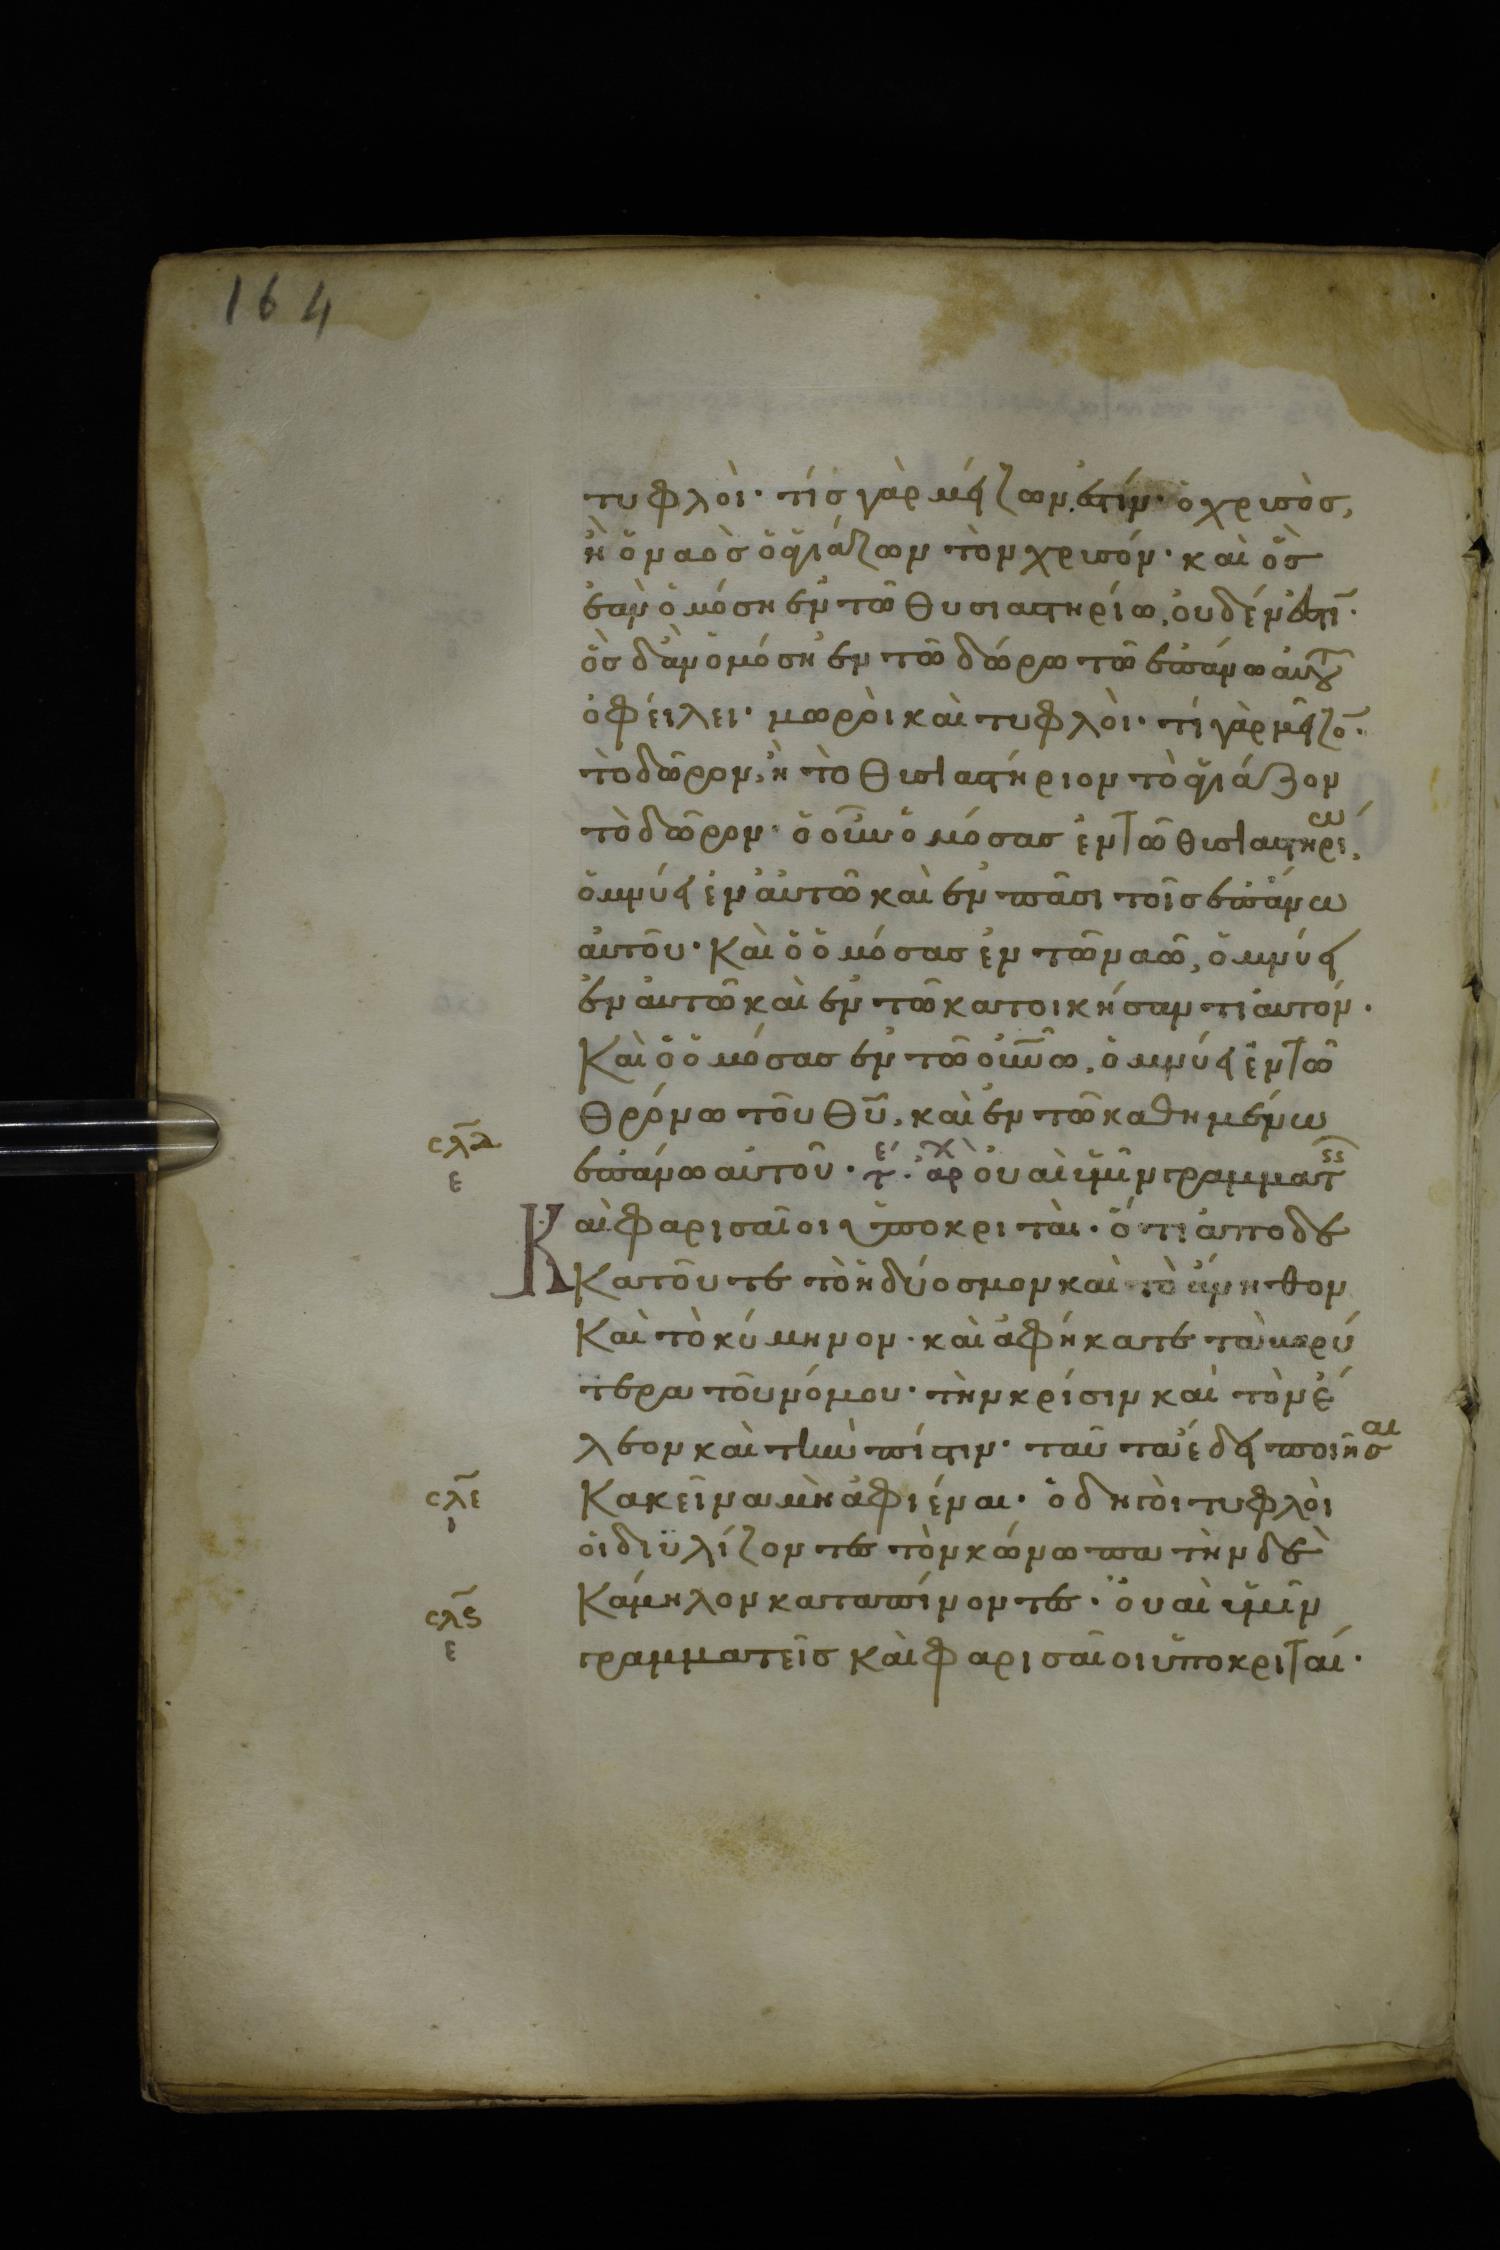 164
τυφλοὶ· τίς γὰρ μείζων ἐστίν· ὁ χρυσὸς,
ἢ ὁ ναὸς ὁ ἁγιάζων τὸν χρυσόν· καὶ ὃς
ἐὰν ὀμόση ἐν τῶ θυσιαστηρίω, οὐδέν ἐστῑ·
ὃς δἂν ὀμόση ἐν τῶ δώρω τῶ ἐπάνω αὐτοῦ
ὀφείλει· μωροὶ καὶ τυφλοὶ· τί γὰρ μεῖζο̄·
τὸ δῶρον, ἢ τὸ θυσιαστήριον τὸ ἁγιάζον
τὸ δῶρον· ὁ οὖν ὀμόσας ἐν τῶ θυσιαστηρίω,
ὀμνύει ἐν αὐτῶ καὶ ἐν πᾶσι τοῖς ἐπάνω
αὐτοῦ· Καὶ ὁ ὀμόσας ἐν τῶ ναῶ, ὀμνύει
ἐν αὐτῶ καὶ ἐν τῶ κατοικήσαντι αὐτόν·
Καὶ ὁ ὀμόσας ἐν τῶ οὐνῶ, ὀμνύει ἐν τῶ
θρόνω τοῦ θῡ, καὶ ἐν τῶ καθημένω
σλδ ἐπάνω αὐτοῦ· τε· ἀρχ οὐαὶ ὑμῖν γραμματ
ε
Καὶ φαρισαῖοι ὑποκριταὶ· ὅτι ἀποδε
κατοῦτε τὸ ἡδύοσμον καὶ τὸ ἄνηθον
Καὶ τὸ κύμηνον· καὶ ἀφήκατε τὰ βαρύ
τερα τοῦ νόμου· τὴν κρίσιν καὶ τὸν ἔ
λεον καὶ τὴν πίστιν· ταῦτα ἔδει ποιῆσαι
σλε Κακεῖνα μὴ ἀφιέναι· ὁδηγοὶ τυφλοὶ
ι
οἱ διϋλίζοντες τὸν κώνωπα τὴν δὲ
Κάμηλον καταπίνοντες· Οὐαὶ ὑμῖν
σλς γραμματεῖς καὶ φαρισαῖοι ὑποκριταί·
ε